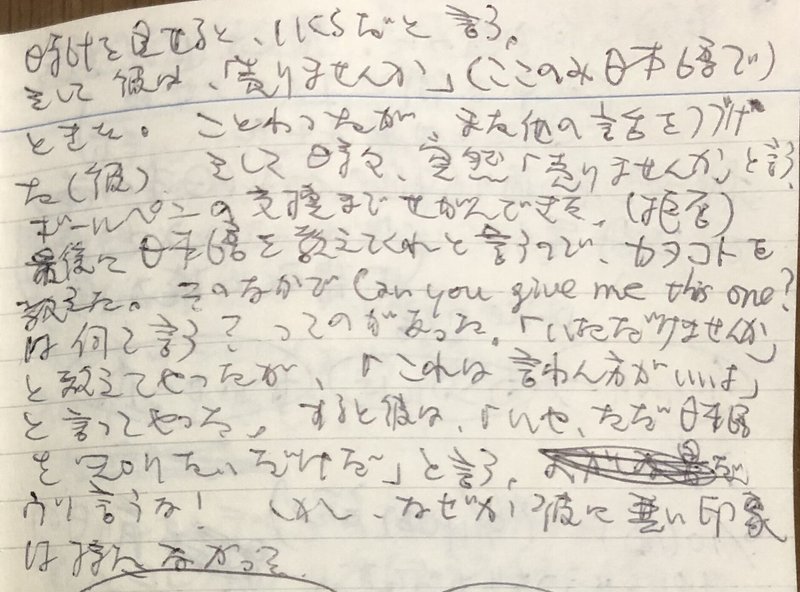 時計を見せると、いくらだと言う。
そして彼は、「売りませんか」(ここのみ日本語で)
ときた。ことわったが また他の話をつづけ
た(彼) そして時々、突然「売りませんか」と言う
ボールペンの交換までせがんできた。(拒否)
最後に日本語を教えてくれと言うので、カタコトを
教えた。そのなかで Can you give me this one?
は何て言う?ってのがあった。「いただけませんか」
と教えてやったが、「これは言わん方がいいよ」
と言ってやった。すると彼は、「いや、ただ日本語
を知りたいだけだ」と言う。
うり言うな! しかし、なぜか彼に悪い印象
は持たなかった。